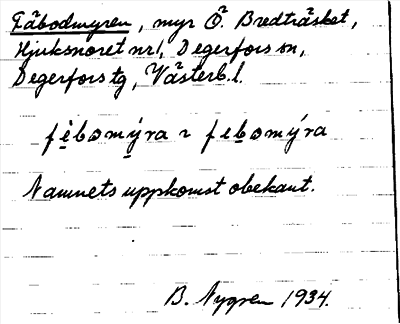 Fäbodmyren, myr Ö. Bredträsket,
Hjuksnoret nr 1, Degerfors sn,
Degerfors tg, Västerb. l.
fèbomýra ꝛ febomýra
Namnets uppkomst obekant.
B. Nygren 1934.